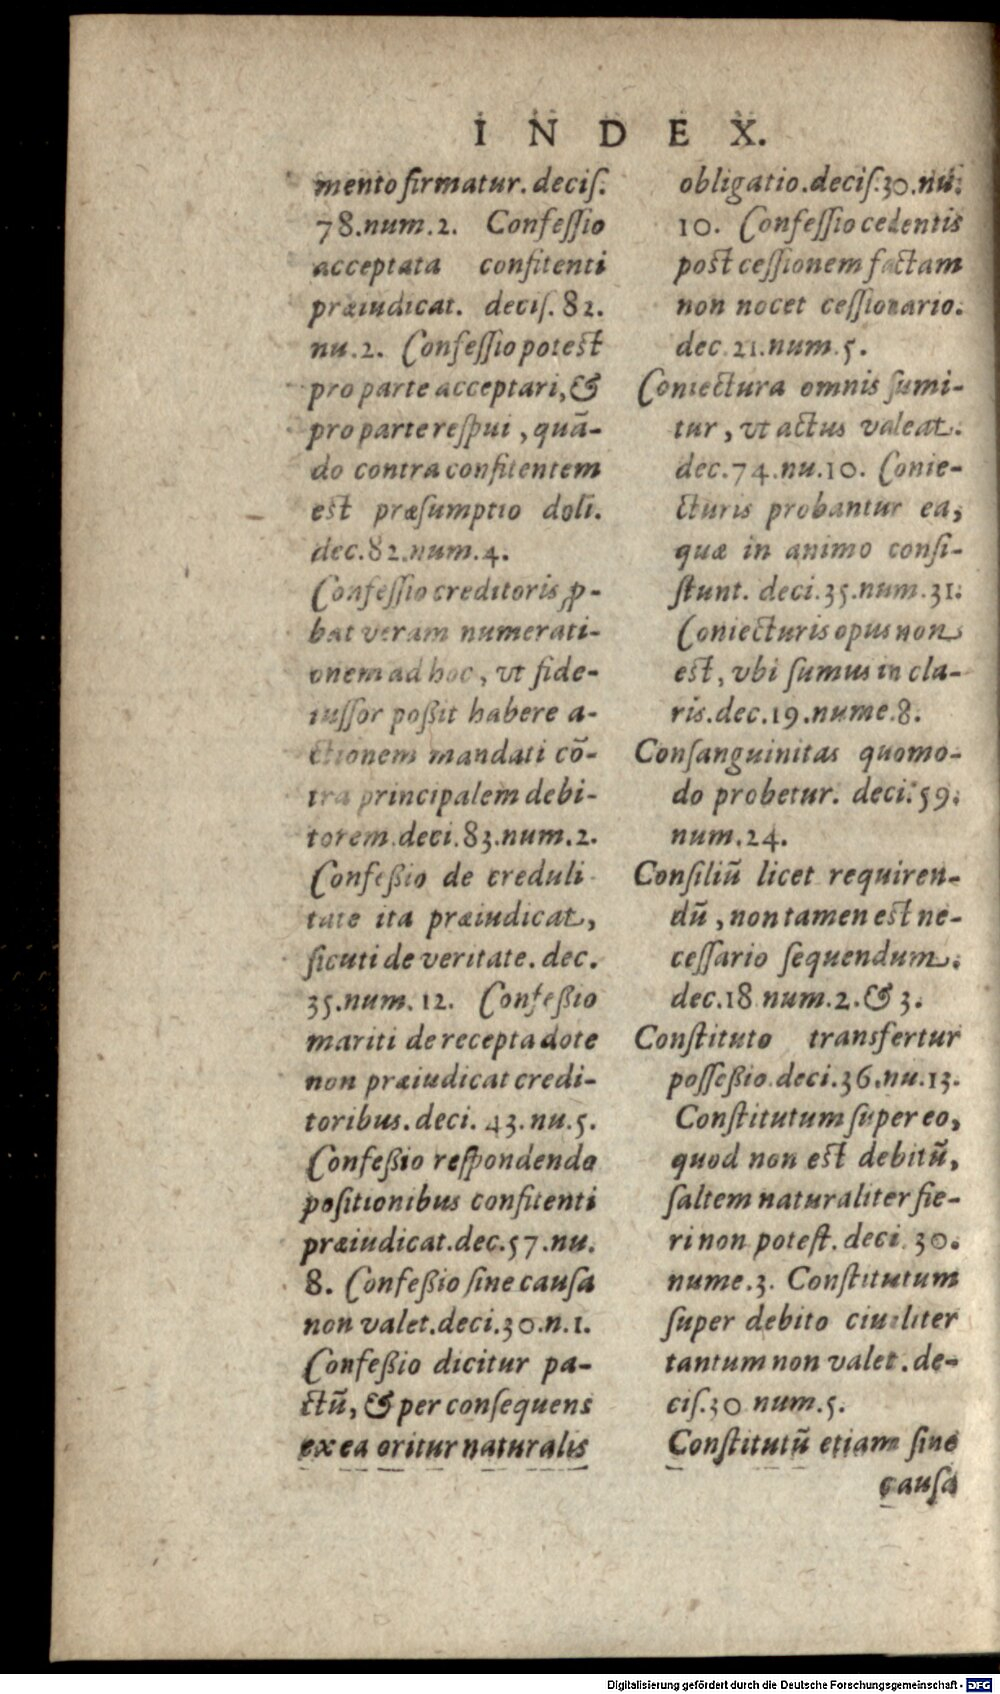 INDEX.
mento firmatur. decis.
78.num.2. Confeſſio
acceptata confitenti
præiudicat. deciſ. 82.
nu.2. Confeſſio potest
pro parte acceptari, &
pro parte reſpui, quã-
do contra confitentem
est præſumptio doli.
dec.82.num.4.
Confeſſio creditoris ꝓ-
bat veram numerati-
onem ad hoc, vt fide-
iuſſor poßit habere a-
ctionem mandati cõ-
tra principalem debi-
torem.deci.83.num.2.
Confeßio de creduli
tate ita præiudicat,
ſicuti de veritate. dec.
35.num.12. Confeßio
mariti de recepta dote
non præiudicat credi-
toribus. deci. 43.nu.5.
Confeßio reſpondendo
poſitionibus confitenti
præiudicat.dec.57.nu.
8. Confeßio ſine cauſa
non valet.deci.30.n.1.
Confeßio dicitur pa-
ctũ, & per conſequens
ex ea oritur naturalis
obligatio.deciſ.30.nu.
10. Confeſſio cedentis
post ceſſionem factam
non nocet ceſſionario.
dec.21.num.5.
Coniectura omnis ſumi-
tur, vt actus valeat.
dec.74.nu.10. Conie-
cturis probantur ea,
quæ in animo conſi-
ſtunt. deci.35.num.31.
Coniecturis opus non
est, vbi ſumus in cla-
ris.dec.19.nume.8.
Conſanguinitas quomo-
do probetur. deci.59.
num.24.
Conſiliũ licet requiren-
dũ, non tamen est ne-
ceſſario ſequendum.
dec.18 num.2.& 3.
Conſtituto transfertur
poſſeßio.deci.36.nu.13.
Conſtitutum ſuper eo,
quod non est debitũ,
ſaltem naturaliter fie-
ri non poteſt. deci. 30.
nume.3. Conſtitutum
ſuper debito ciuiliter
tantum non valet. de-
ciſ.30 num.5.
Conſtitutũ etiam ſine
cauſa
Digitalisierung gefördert durch die Deutsche Forschungsgemeinschaft - DFG